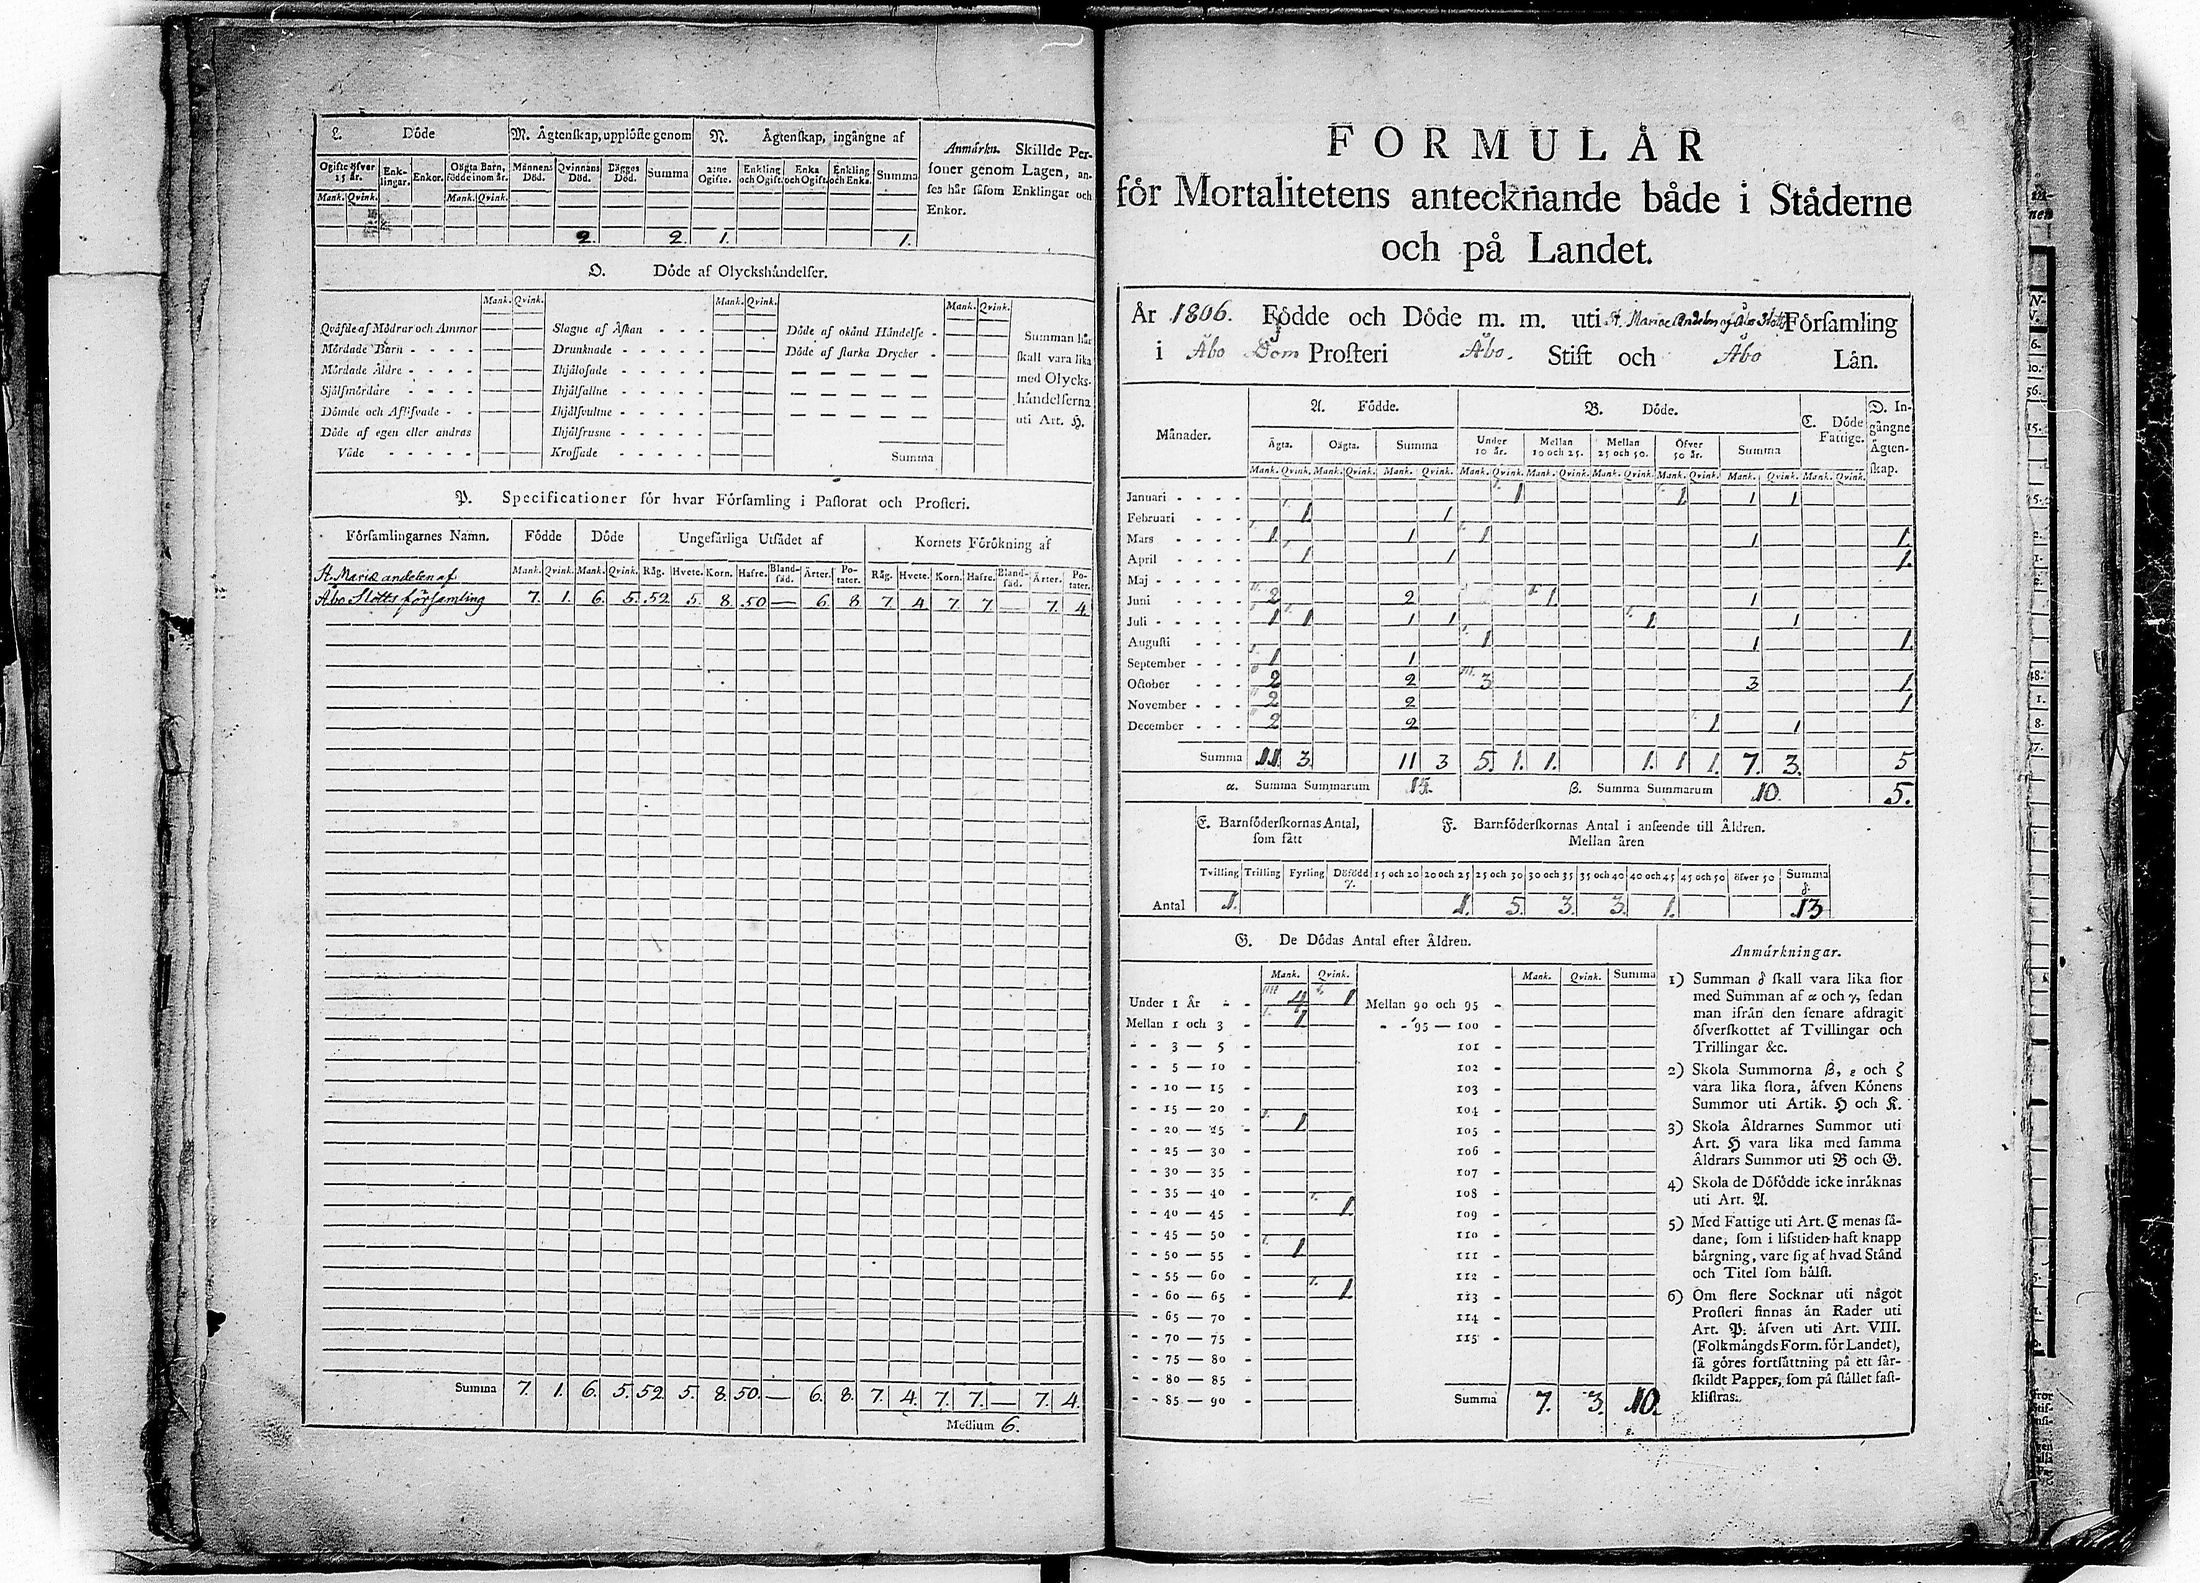 L. Döde
M. Ägtenskap, upplöste genom
N. Ägtenskap, ingångne af
Anmärkn. Skillde Per-
soner genom Lagen, an-
ses här såsom Enklingar och
Enkor.
Ogifte öfver 15 år. Enk-lingar. Enkor. Oägta Barn, födde inom år. Männens Död. Qvinnans Död. Bägges Död. Summa 2:ne Ogifte. Enkling och Ogift. Enka och Ogift. Enkling och Enka. Summa
Mank. Qvink. Mank. Qvink.
2. 2. 1. 1.
O. Döde af Olyckshändelser.
Mank. Qvink. Mank. Qvink. Mank. Qvink.
Qväfde af Mödrar och Ammor
Mördade Barn - - - -
Mördade Äldre - - - -
Sjelfmördare - - - -
Dömde och Aflifvade - -
Döde af egen eller andras
Våde - - - - -
Slagne af Åskan - - -
Drunknade - - - - -
Ihjälosade - - - - -
Ihjälfallne - - - - -
Ihjälsvultne - - - - -
Ihjälfrusne - - - - -
Krossade - - - - -
Döde af okänd Händelse -
Döde af starka Drycker -
Summa
Summan här
skall vara lika
med Olycks-
händelserna
uti Art. H.
P. Specificationer för hvar Församling i Pastorat och Prosteri.
Församlingarnes Namn. Födde Döde Ungefärliga Utsädet af Kornets Förökning af
Mank. Qvink. Mank. Qvink. Råg. Hvete. Korn. Hafre. Bland-säd. Ärter. Po-tater. Råg. Hvete. Korn. Hafre. Bland-säd. Ärter. Po-tater.
St. Mariæ andelen af
Åbo Slotts församling 7. 1. 6. 5. 52. 5. 8. 50. — 6. 8. 7. 4. 7. 7. — 7. 4.
Summa 7. 1. 6. 5. 52. 5. 8. 50. — 6. 8. 7. 4. 7. 7. — 7. 4.
Medium 6.
FORMULÄR
för Mortalitetens antecknande både i Städerne
och på Landet.
År 1806. Födde och Döde m. m. uti St. Mariæ Andelen af Åbo Slotts Församling
i Åbo Dom Prosteri Åbo. Stift och Åbo Län.
Månader. A. Födde. B. Döde. C. Döde Fattige. D. In-gångne Ägten-skap.
Ägta. Oägta. Summa Under 10 år. Mellan 10 och 25. Mellan 25 och 50. Öfver 50 år. Summa
Mank. Qvink. Mank. Qvink. Mank. Qvink. Mank. Qvink. Mank. Qvink. Mank. Qvink. Mank. Qvink. Mank. Qvink. Mank. Qvink.
Januari - - - - 1 1. 1 1
Februari - - - 1. 1
Mars - - - - 1. 1 1 1 1.
April - - - - 1 1 1.
Maj - - - - -
Juni - - - - 2 2 1 1
Juli - - - - - 1 1 1 1 1. 1
Augusti - - - 1 1 1.
September - - - 1 1
October - - - 2 2 3 3 1.
November - - - 2 2 1
December - - - 2 2 1 1
Summa 11. 3. 11 3 5. 1. 1. 1. 1 1. 7. 3. 5
α. Summa Summarum 14. β. Summa Summarum 10. 5.
E. Barnföderskornas Antal,
som fått
F. Barnföderskornas Antal i anseende till Åldren.
Mellan åren
Tvilling Trilling Fyrling Döfödd γ. 15 och 20 20 och 25 25 och 30 30 och 35 35 och 40 40 och 45 45 och 50 öfver 50 Summa δ.
Antal 1. 1. 5. 3. 3. 1. 13
G. De Dödas Antal efter Åldren.
Mank. Qvink. Mank. Qvink. Summa
Under 1 År - - 4 1 Mellan 90 och 95 -
Mellan 1 och 3 - 1 - - 95 — 100 -
- - 3 — 5 - 101 -
- - 5 — 10 - 102 -
- - 10 — 15 - 103 -
- - 15 — 20 - 104 -
- - 20 — 25 - 1 105 -
- - 25 — 30 - 106 -
- - 30 — 35 - 107 -
- - 35 — 40 - 108 -
- - 40 — 45 - 1. 109 -
- - 45 — 50 - 110 -
- - 50 — 55 - 1 111 -
- - 55 — 60 - 112 -
- - 60 — 65 - 1. 113 -
- - 65 — 70 - 114 -
- - 70 — 75 - 115 -
- - 75 — 80 -
- - 80 — 85 -
- - 85 — 90 - Summa 7. 3. 10.
ε.
Anmärkningar.
1) Summan δ skall vara lika stor
med Summan af α och γ, sedan
man ifrån den senare afdragit
öfverskottet af Tvillingar och
Trillingar &c.
2) Skola Summorna β, ε och ζ
vara lika stora, äfven Könens
Summor uti Artik. H och K.
3) Skola Åldrarnes Summor uti
Art. H vara lika med samma
Åldrars Summor uti B och G.
4) Skola de Döfödde icke inräknas
uti Art. A.
5) Med Fattige uti Art. C menas så-
dane, som i lifstiden haft knapp
bärgning, vare sig af hvad Stånd
och Titel som hälst.
6) Om flere Socknar uti något
Prosteri finnas än Rader uti
Art. P. äfven uti Art. VIII.
(Folkmängds Form. för Landet),
så göres fortsättning på ett sär-
skildt Papper, som på stället fast-
klistras.